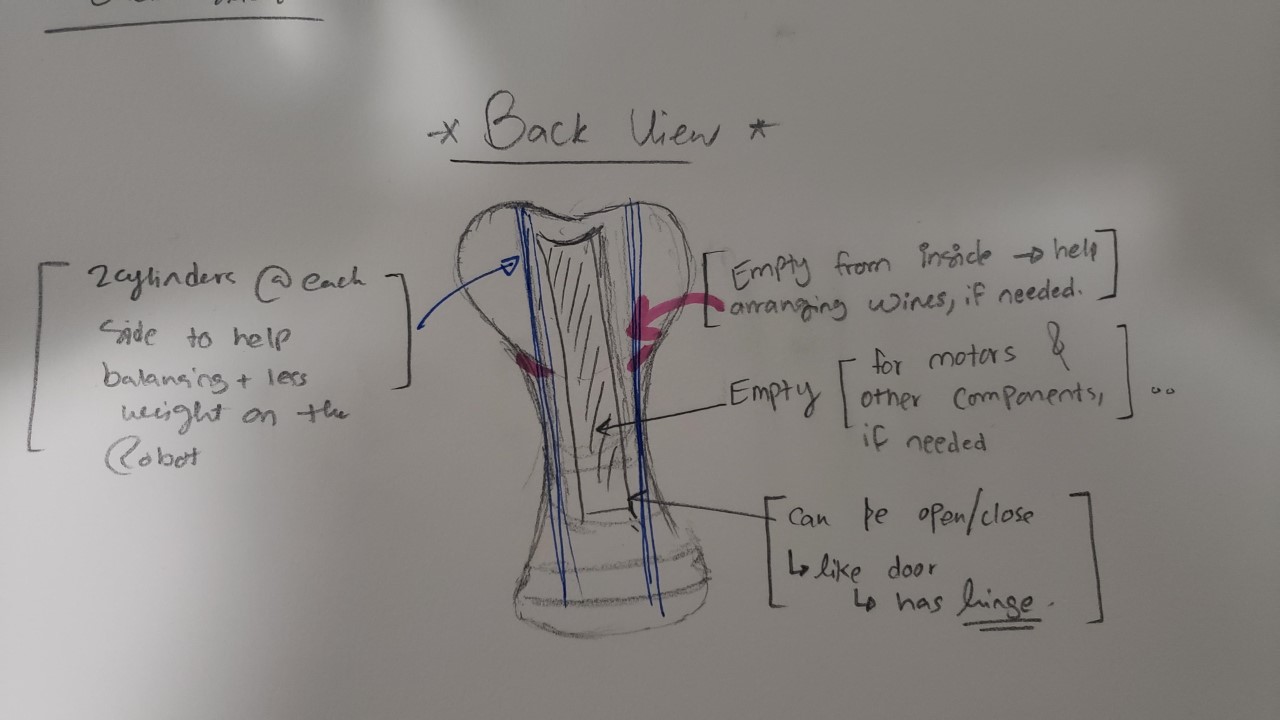 * Back View *
2cylinders @ each
side to help
balancing + less
weight on the
Robot
Empty from inside → help
arranging wires, if needed.
Empty [for motors &
other components,
if needed] ..
can be open/close
↳ like door
↳ has hinge.